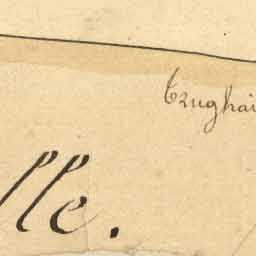 Erughai
lle.